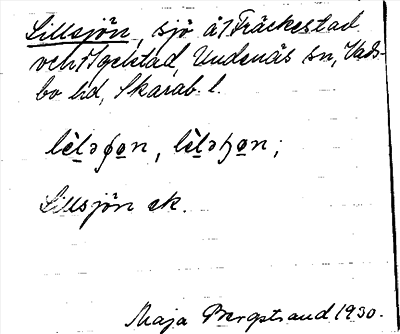 Lillsjön, sjö å Fräckestad
och Igelstad, Undenäs sn, Vads-
bo hd, Skarab. l.
Lillsjön ek.
Maja Bergstrand 1930.